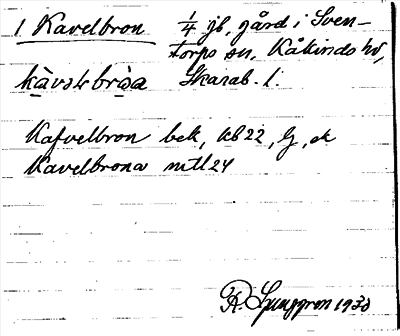 1 Kavelbron 1/4 jb, gård i Sven-
torps sn, Kåkinds hd,
Skarab. l.
Kafvelbron bek, kb 22, G, ek
Kavelbrona mtl 24
R. Ljunggren 1930